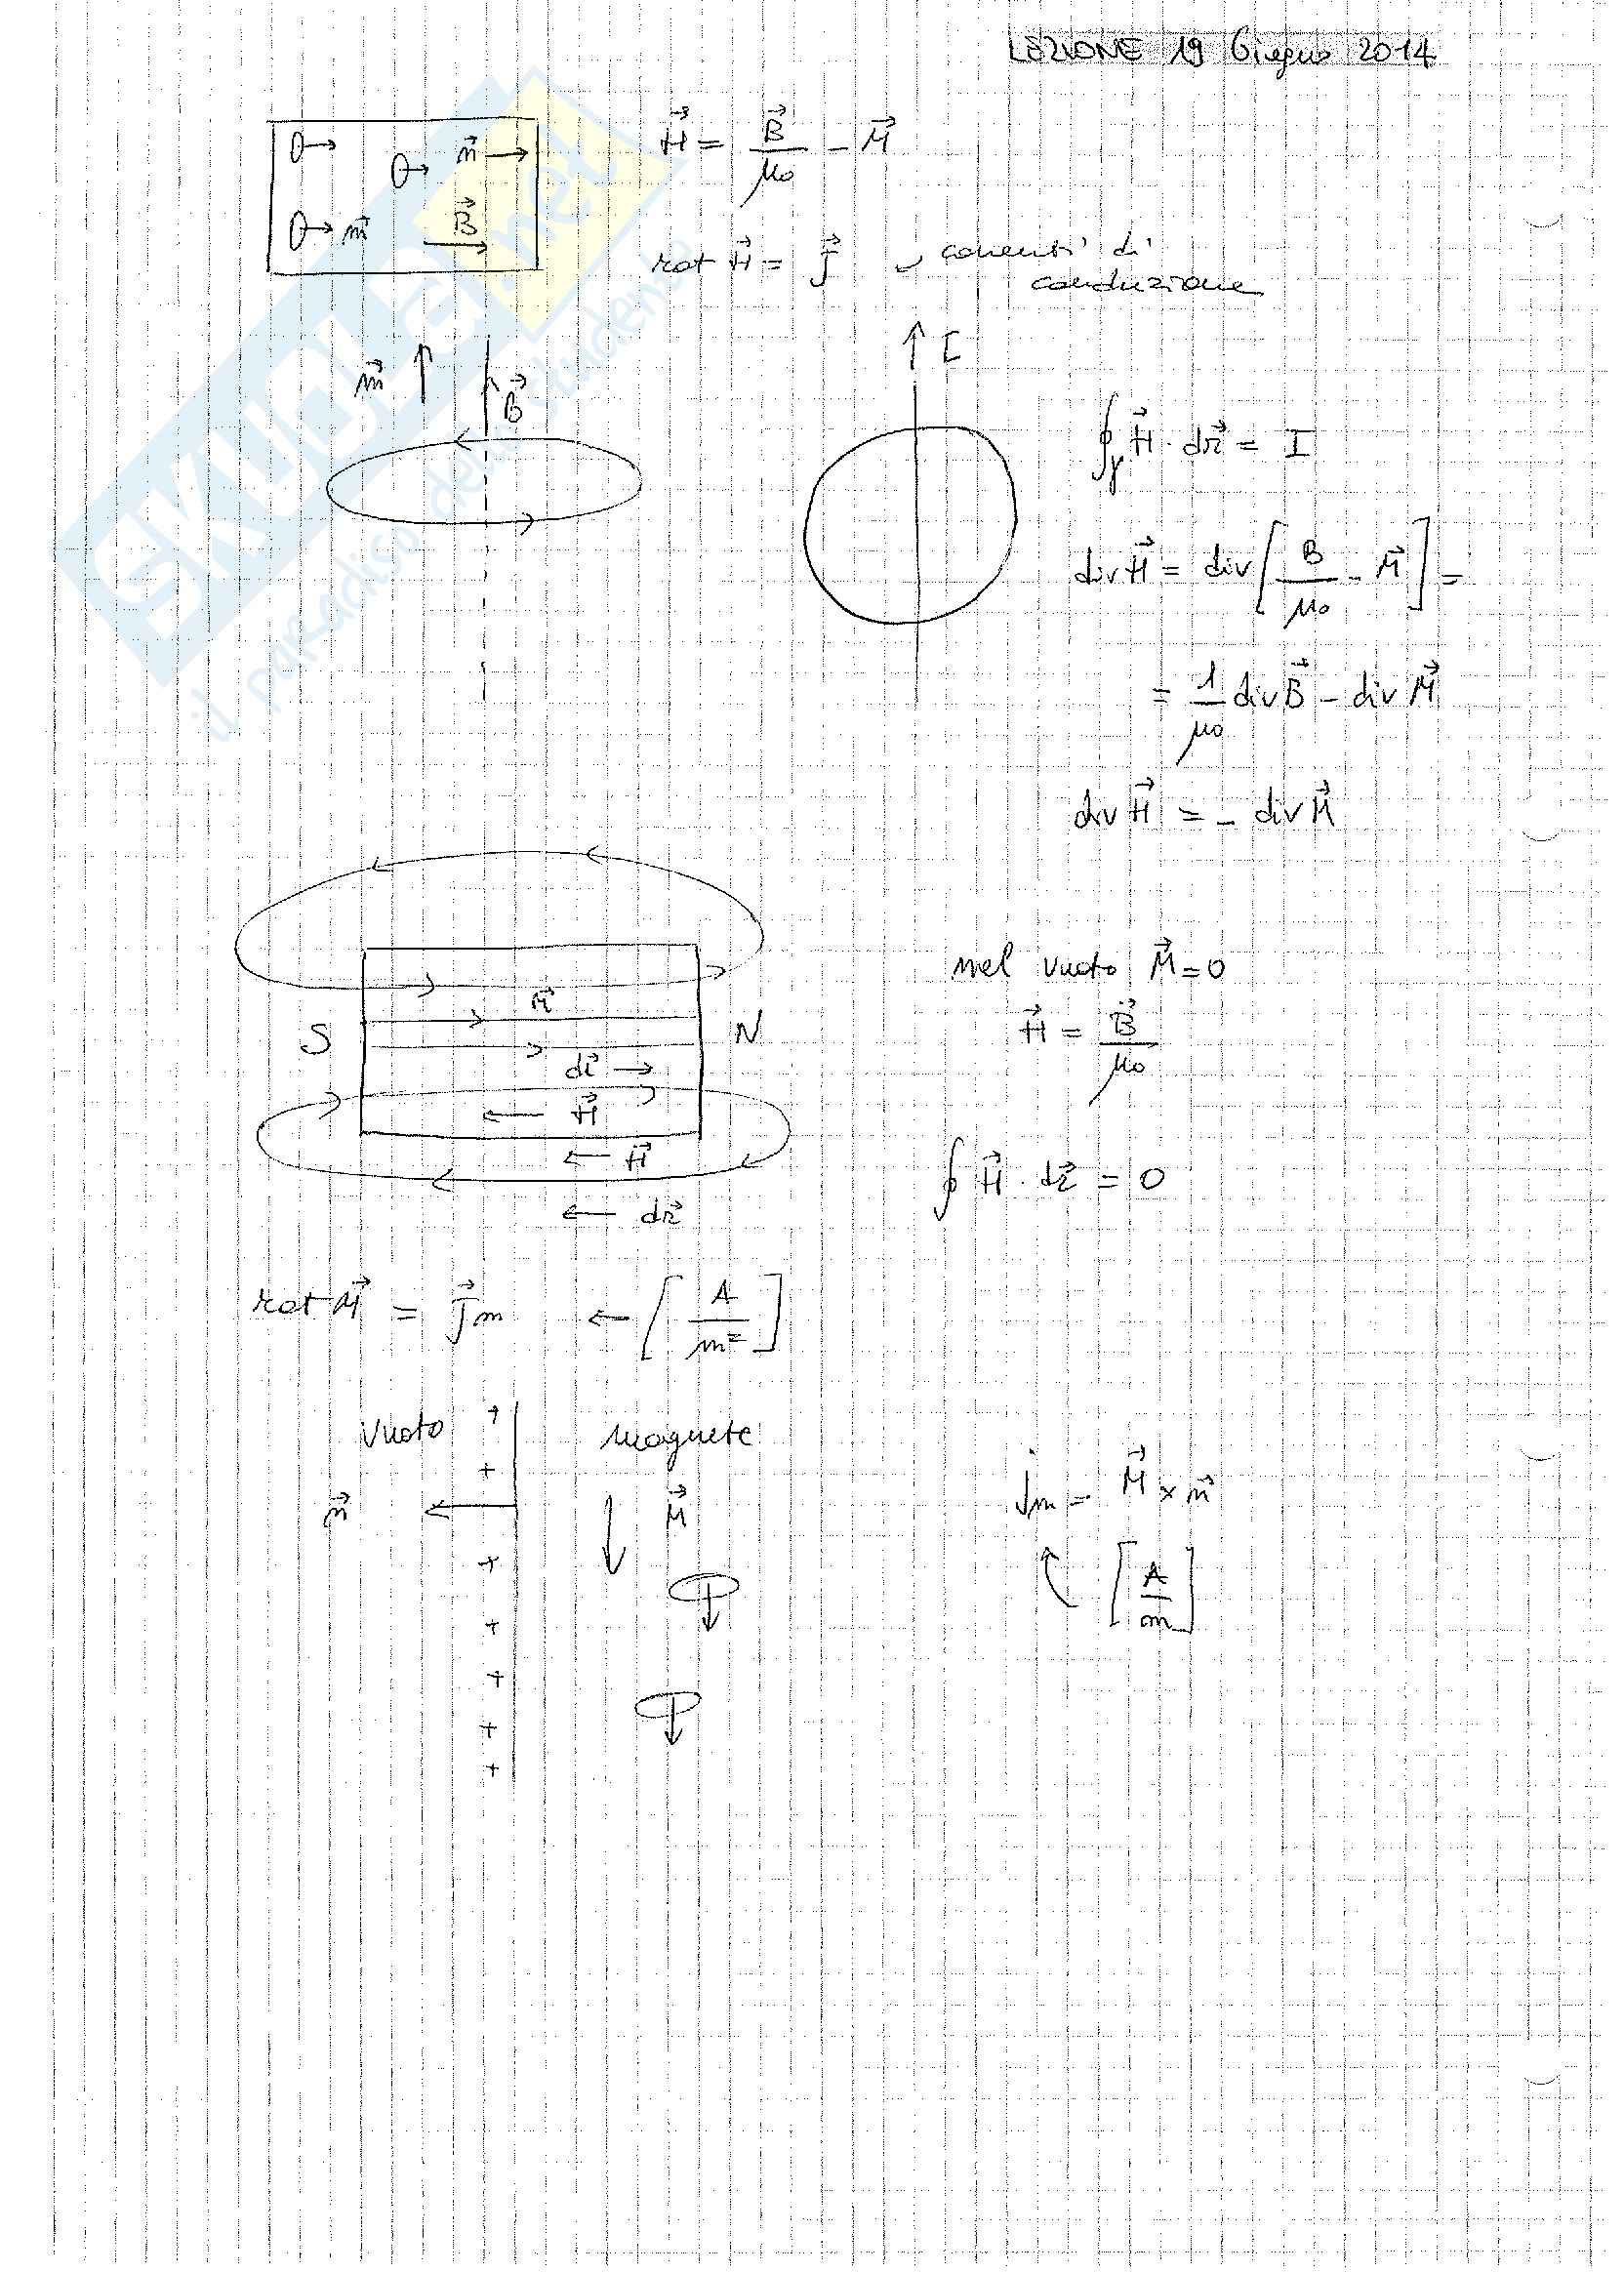 LEZIONE 19 Giugno 2014
m⃗
m⃗
B⃗
H⃗ = B⃗/μ₀ - M⃗
rot H⃗ = J⃗ correnti di
conduzione
m⃗
B⃗
I
∮γ H⃗ · dr⃗ = I
div H⃗ = div [B/μ₀ - M⃗] =
= 1/μ₀ div B⃗ - div M⃗
div H⃗ = - div M⃗
S
M⃗
N
dr⃗ →
← H⃗
← H⃗
← dr⃗
nel vuoto M⃗ = 0
H⃗ = B⃗/μ₀
∮ H⃗ · dr⃗ = 0
rot M⃗ = J⃗m ← [A/m²]
Vuoto
magnete
n⃗
M⃗
+
+
+
+
+
+
+
jm = M⃗ × n⃗
[A/m]
SKUOLA.net
il paradiso dello studente